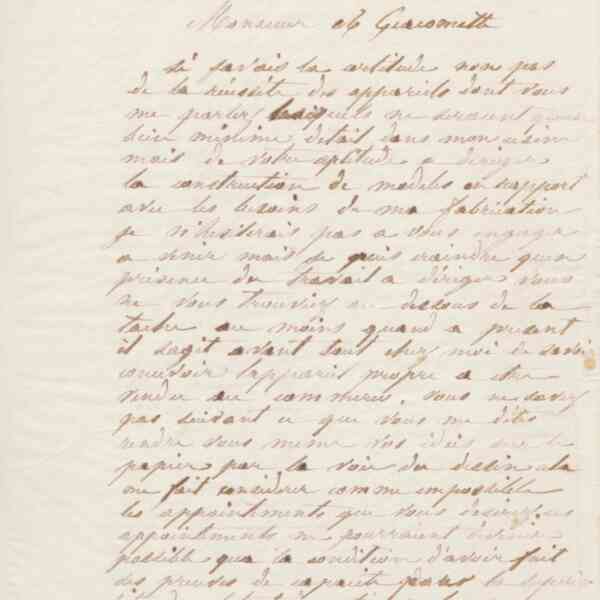 Monsieur A Giacometti
si j'avais la certitude non pas
de la réussite des appareils dont vous
me parlez lesquels ne seraient qu'un
bien minime détail dans mon usine
mais de votre aptitude a diriger
la construction de modeles en rapport
avec les besoins de ma fabrication
je n'hésiterais pas a vous engager
a venir mais je puis craindre qu'en
présence du travail a diriger vous
ne vous trouviez au dessous de la
tache au moins quand a present
il s'agit avant tout chez moi de savoir
concevoir l'appareil propre a etre
vendu au commerce. vous ne savez
pas suivant ce que vous me dites
rendre vous meme vos idées sur le
papier par la voie du dessin cela
me fait considérer comme impossible
les appointements que vous
appointements ne pourraient
possible qu'a la condition d'avoir fait
des preuves de capacité dans la